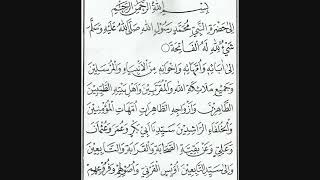 بِسْمِ اللهِ الرَّحْمٰنِ الرَّحِيْمِ
اِلَى حَضْرَةِ النَّبِيِّ مُحَمَّدٍ رَسُوْلِ اللهِ صَلَّى اللهُ عَلَيْهِ وَسَلَّمَ
شَيْءٌ لِلّٰهِ لَهُ الْفَاتِحَة
اِلَى اٰبَائِهِ وَاُمَّهَاتِهِ وَاِخْوَانِهِ مِنَ الْاَنْبِيَاءِ وَالْمُرْسَلِيْنَ
وَجَمِيْعِ مَلَائِكَةِ اللهِ وَالْمُقَرَّبِيْنَ وَاَهْلِ بَيْتِهِ الطَّيِّبِيْنَ
الطَّاهِرِيْنَ وَاَزْوَاجِهِ الطَّاهِرَاتِ اُمَّهَاتِ الْمُؤْمِنِيْنَ
وَالْخُلَفَاءِ الرَّاشِدِيْنَ سَيِّدِنَا اَبِيْ بَكْرٍ وَعُمَرَ وَعُثْمَانَ
وَعَلِيٍّ وَعَنْ بَقِيَّةِ الصَّحَابَةِ وَالْقَرَابَةِ وَالتَّابِعِيْنَ
وَاِلَى سَيِّدِ التَّابِعِيْنَ اُوَيْسِ الْقَرَنِيِّ وَاُصُوْلِهِمْ وَفُرُوْعِهِمْ